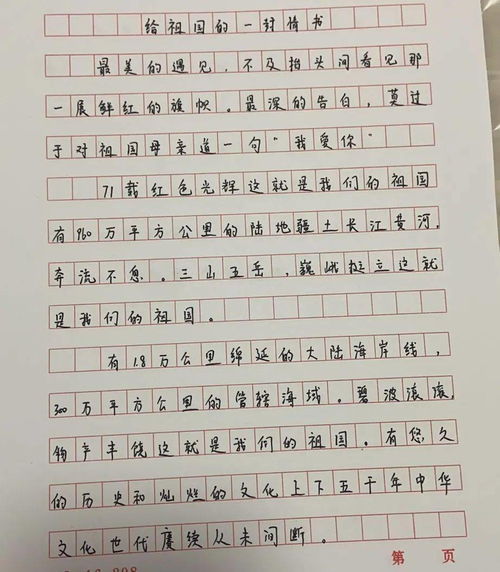 给祖国的一封情书
最美的遇见，不及抬头间看见那
一展鲜红的旗帜。最深的告白，莫过
于对祖国母亲道一句“我爱你”
71载红色光辉这就是我们的祖国
有960万平方公里的陆地疆土长江黄河，
奔流不息。三山五岳，巍峨挺立这就
是我们的祖国。
有1.8万公里绵延的大陆海岸线，
300万平方公里的管辖海域。碧波滚滚，
物产丰饶这就是我们的祖国。有悠久
的历史和灿烂的文化上下五千年中华
文化世代赓续从未间断。
第 页